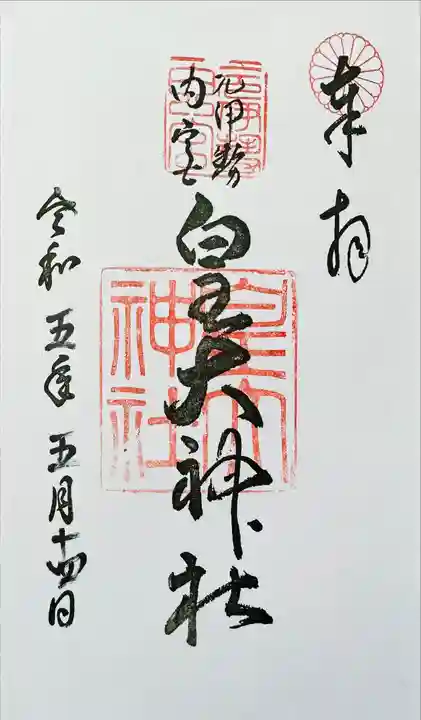 奉拝
元伊勢
内宮
皇大神社
令和五年五月十四日
皇大
神社